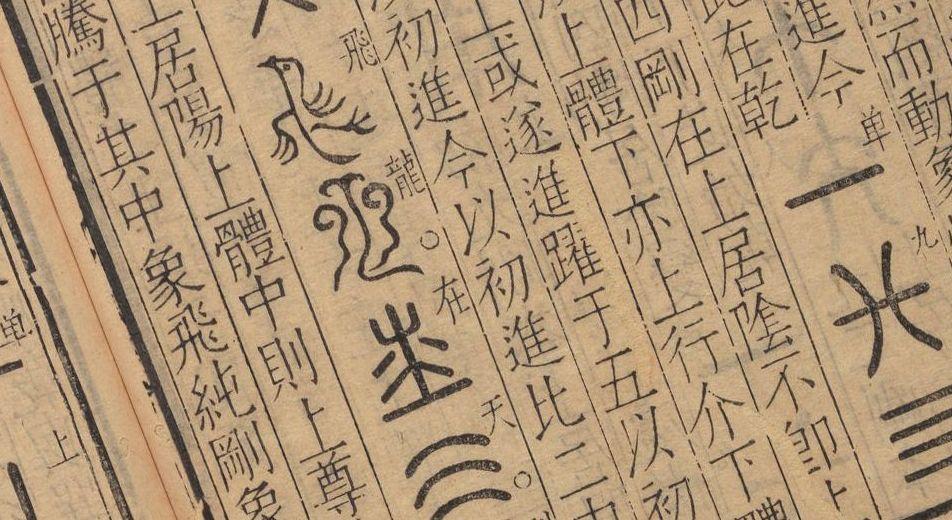 而動象
進今
单 一
九 九
此在乾
四剛在上居陰不卽上
上體下亦上行介下體
上或遂進躍于五以初
初進今以初進比二中
飛 飛
龍 龍。
在 在
天 天。
上居陽上體中則上尊
騰于其中象飛純剛象
单
上